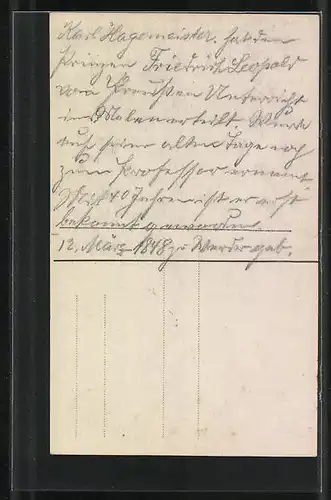 Karl Hagemeister, hat den
Prinzen Friedrich Leopold
von Preußen Unterricht
im Malen erteilt. Wurde
auf seine alten Tage noch
zum Professor ernannt.
Mit 40 Jahren ist er erst
bekannt geworden.
12. März 1848 zu Werder geb.